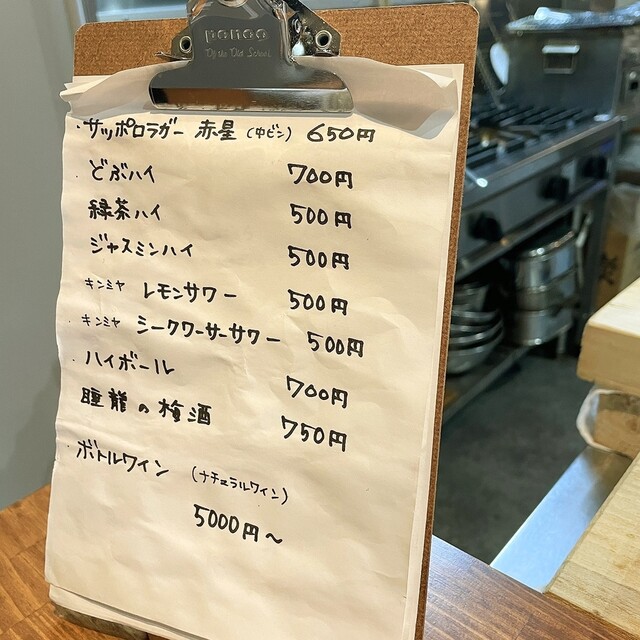 penco
Of the Old School
・サッポロラガー 赤星 (中ビン) 650円
どぶハイ 700円
緑茶ハイ 500円
ジャスミンハイ 500円
キンミヤ レモンサワー 500円
キンミヤ シークワーサーサワー 500円
ハイボール 700円
睡龍の梅酒 750円
ボトルワイン (ナチュラルワイン)
5000円〜